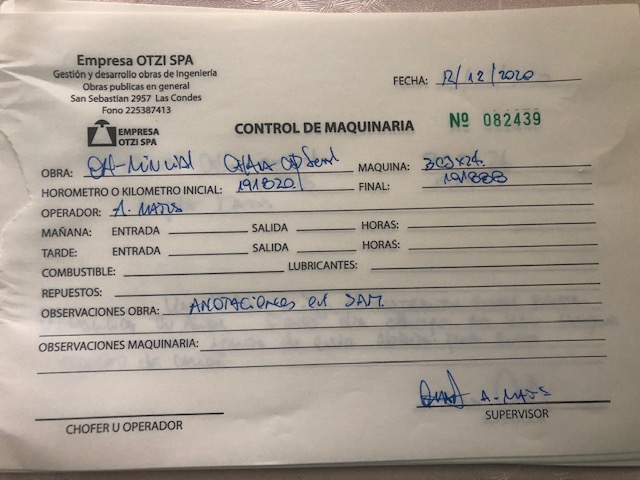 Empresa OTZI SPA
Gestión y desarrollo obras de Ingeniería
Obras publicas en general
San Sebastian 2957 Las Condes
Fono 225387413
FECHA: /12/2020
EMPRESA
OTZI SPA
CONTROL DE MAQUINARIA
Nº 082439
OBRA: MAQUINA:
HOROMETRO O KILOMETRO INICIAL: 191820 FINAL: 191888
OPERADOR: A. MATUS
MAÑANA: ENTRADA SALIDA HORAS:
TARDE: ENTRADA SALIDA HORAS:
COMBUSTIBLE: LUBRICANTES:
REPUESTOS:
OBSERVACIONES OBRA: ANOTACIONES EN
OBSERVACIONES MAQUINARIA:
CHOFER U OPERADOR
SUPERVISOR